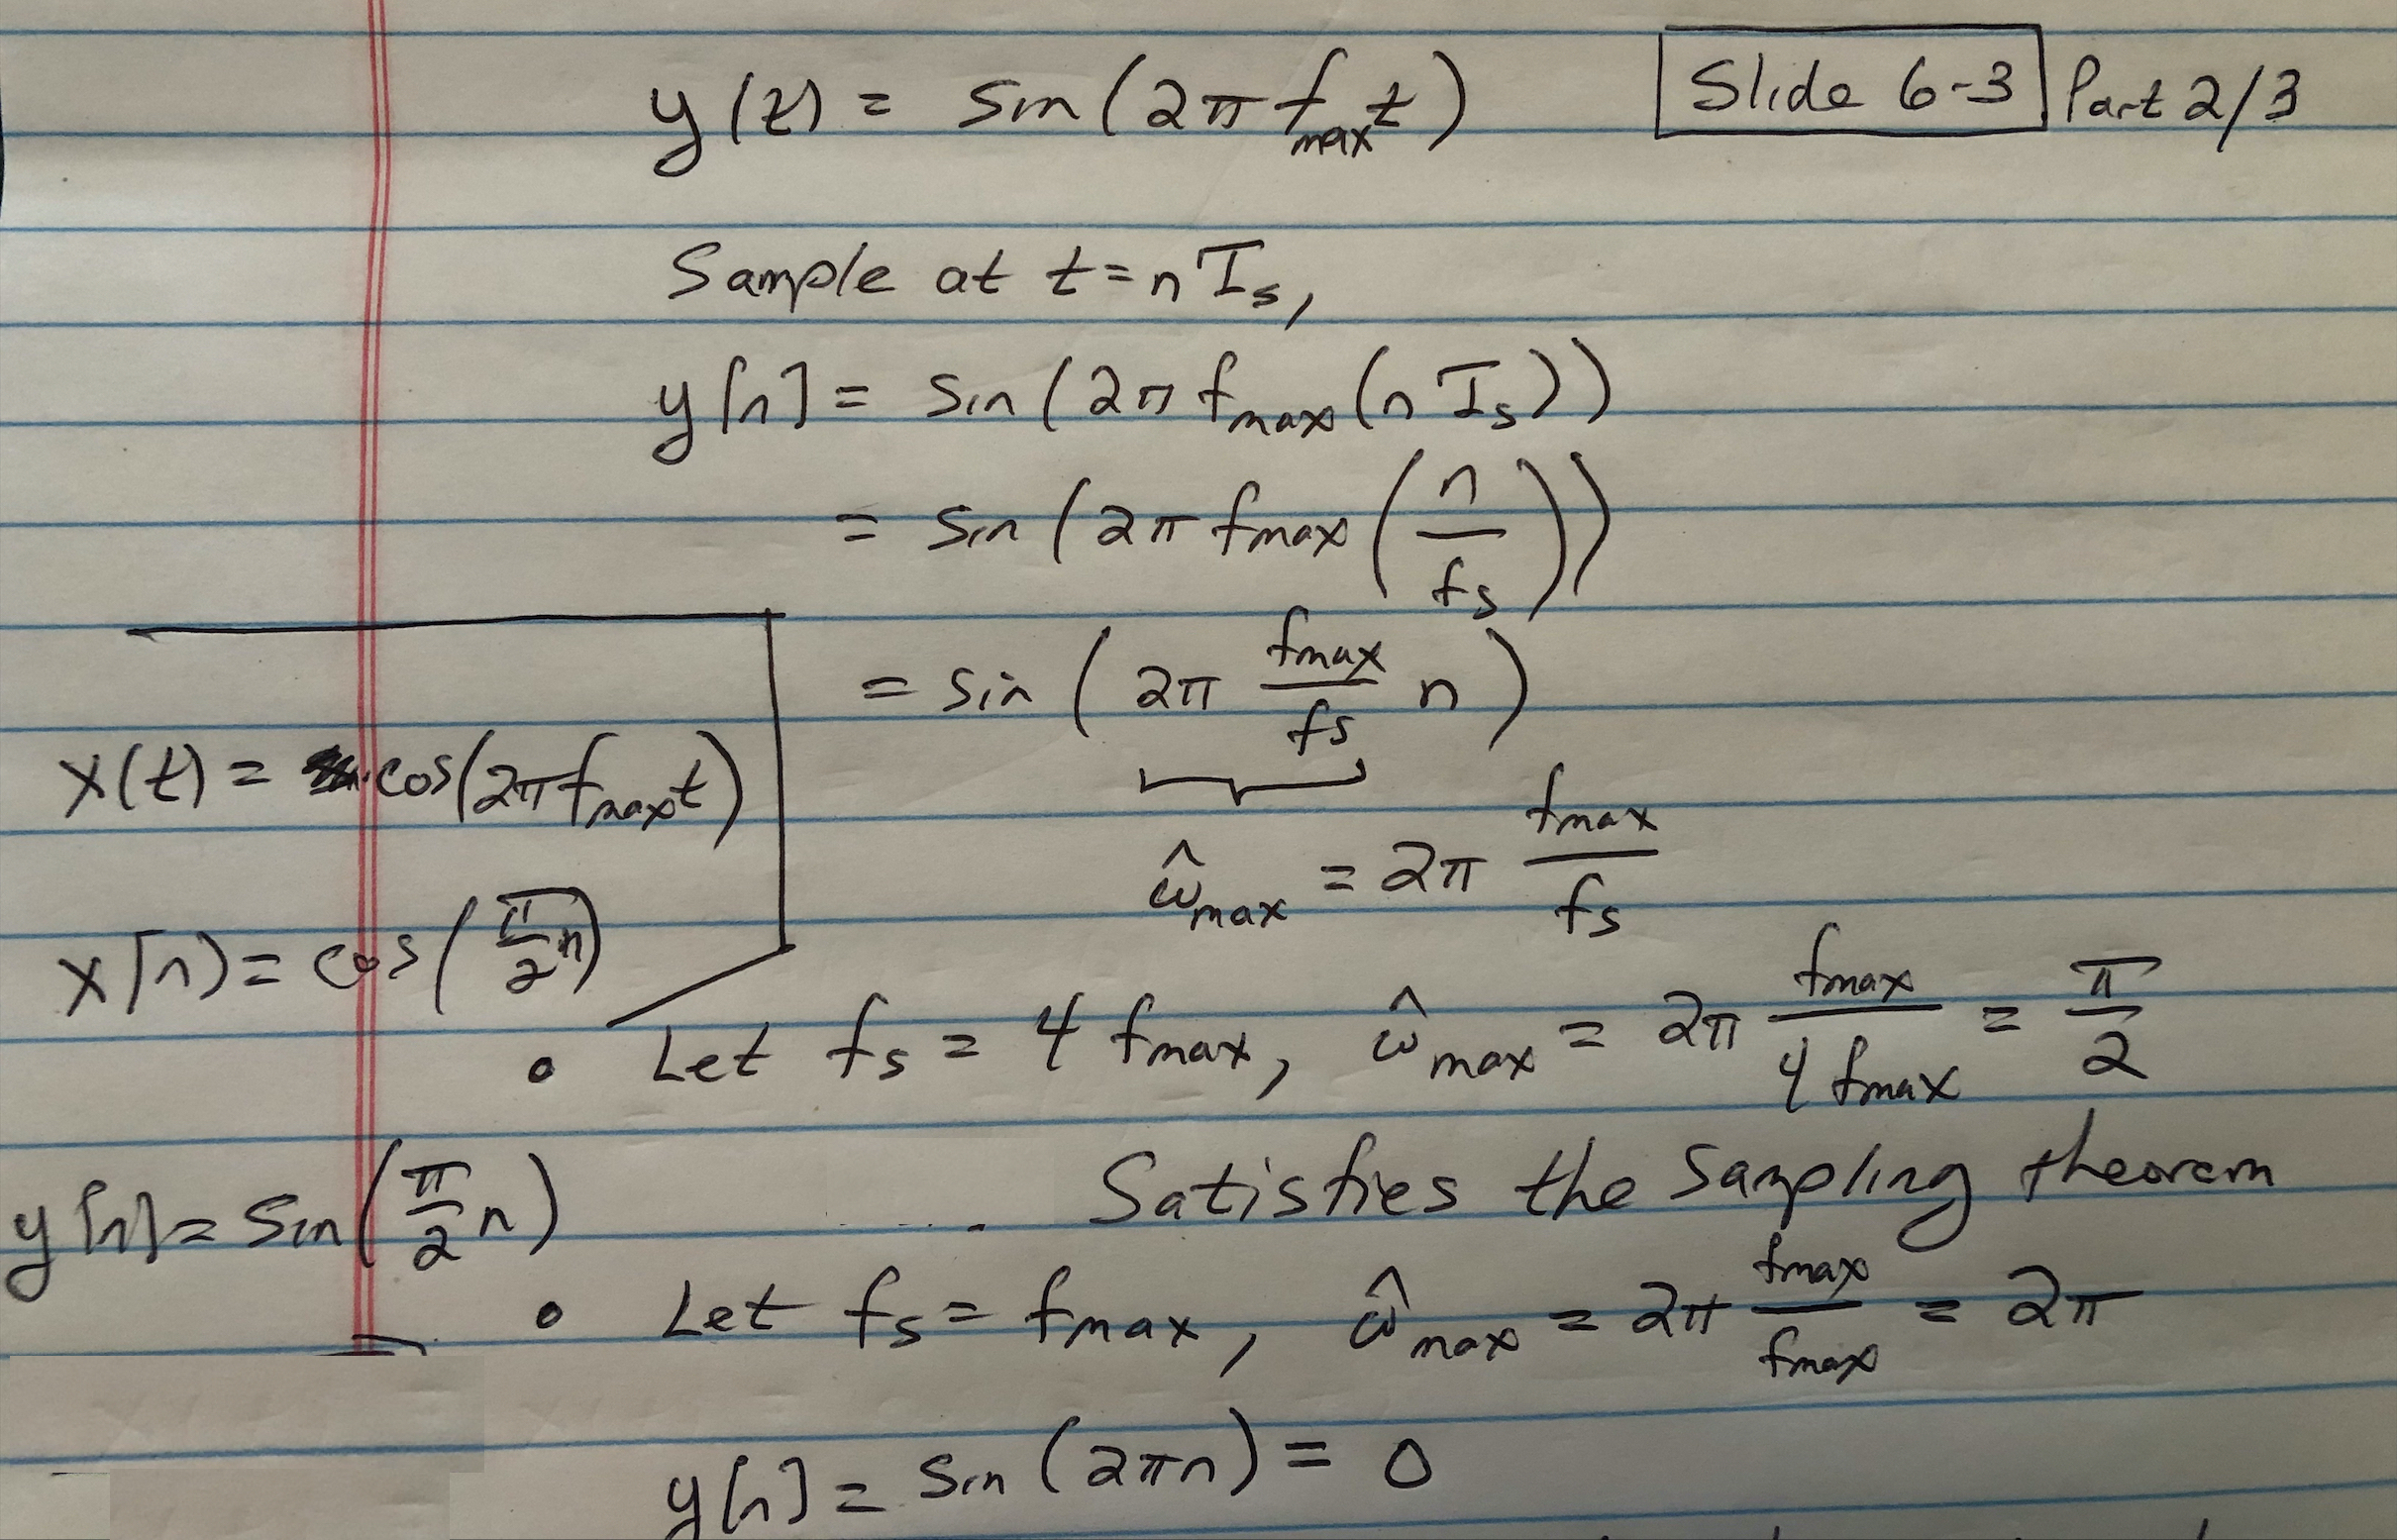 y(t) = sin(2π f_max t)
Slide 6-3 Part 2/3
Sample at t = n T_s,
y[n] = sin(2π f_max (n T_s))
= sin(2π f_max (n/f_s))
= sin(2π f_max/f_s n)
ω̂_max = 2π f_max/f_s
x(t) = cos(2π f_max t)
x[n] = cos(π/2 n)
• Let f_s = 4 f_max, ω̂_max = 2π f_max/4 f_max = π/2
y[n] = sin(π/2 n)
Satisfies the Sampling theorem
• Let f_s = f_max, ω̂_max = 2π f_max/f_max = 2π
y[n] = sin(2πn) = 0